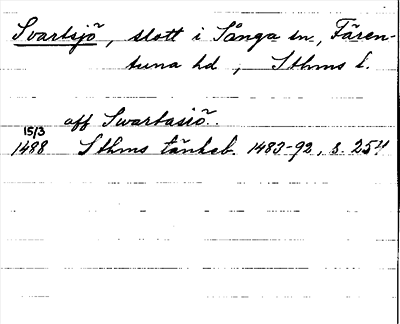 Svartsjö, slott i Sånga sn, Fären-
tuna hd, Sthms l.
aff Swartasiö.
15/3
1488 Sthms tänkeb. 1483-92, s. 254